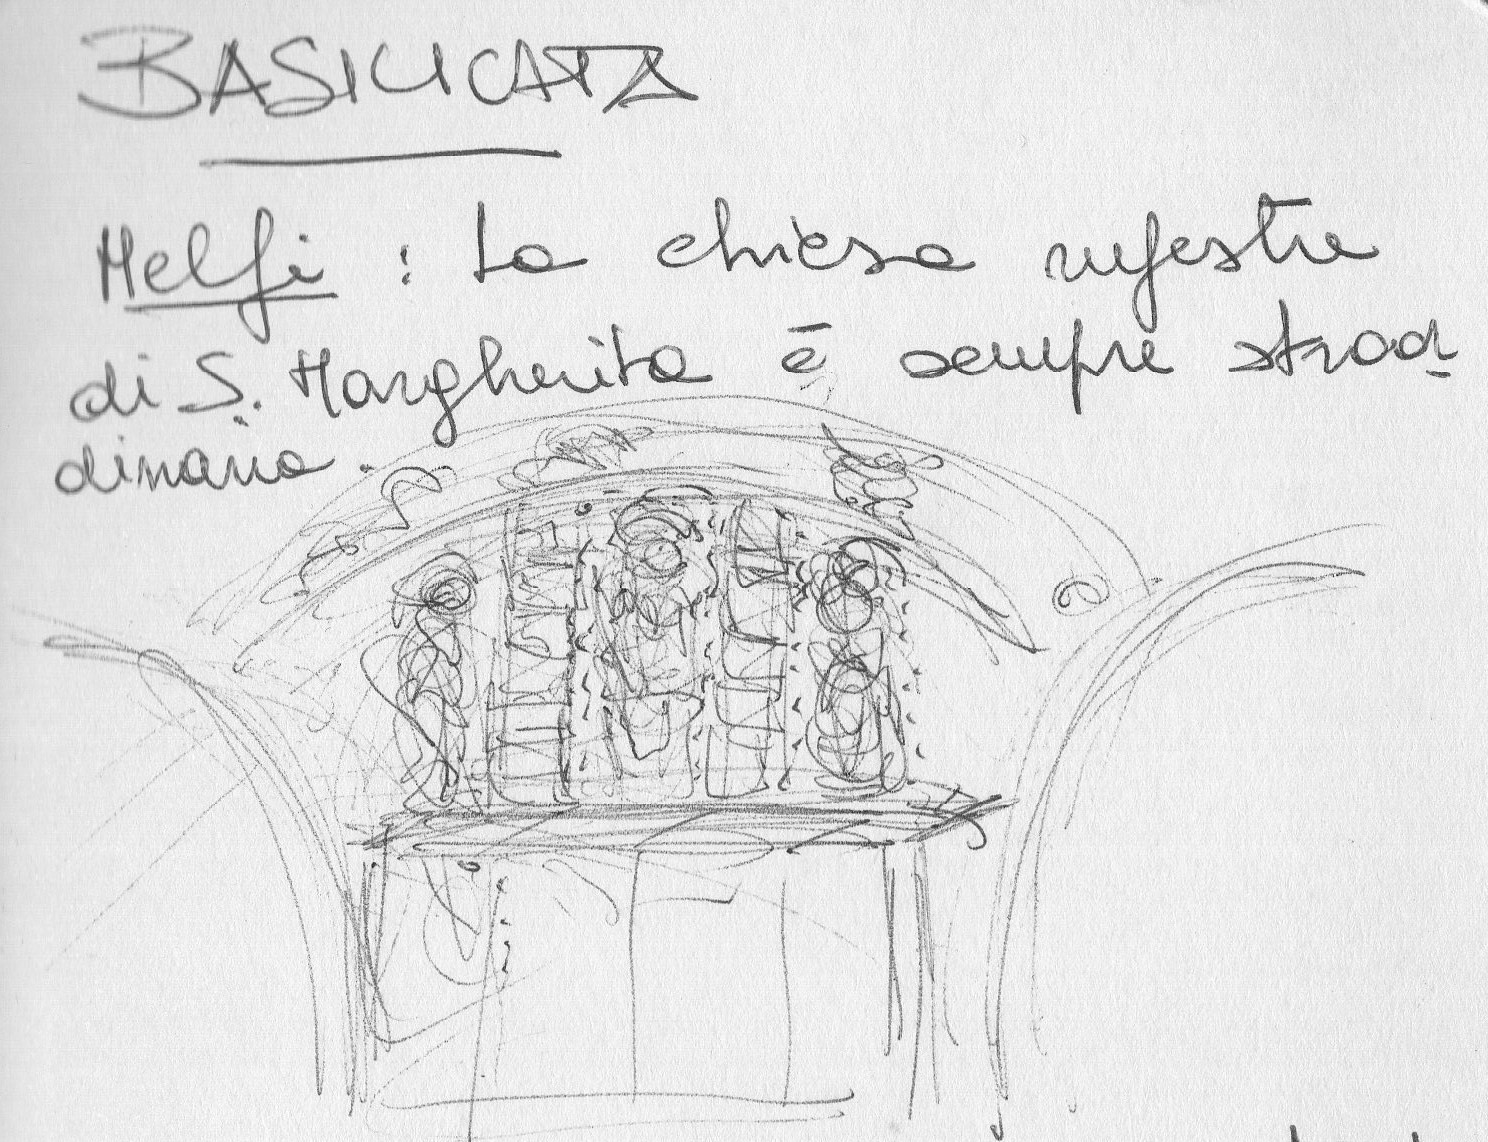 BASILICATA
Melfi : La chiesa rupestre
di S. Margherita è sempre straor
dinaria.